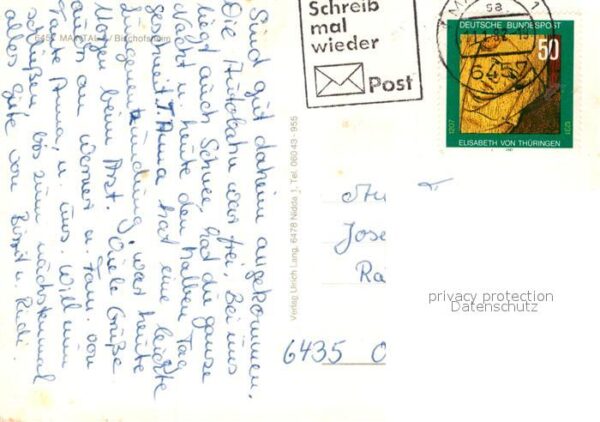 6457 MAINTAL / Bischofsheim
Sind gut daheim angekommen.
Die Autobahn war frei, Bei uns
liegt auch Schnee, hat die ganze
Nacht u. heute den halben Tag
geschneit. T. Anna hat eine leichte
Lungenentzündung, war heute
Morgen beim Arzt. Viele Grüße
auch an Werner u. Fam. von
Tante Anna, u. uns. Will nun
schließen, bis zum nächstenmal
alles gute von Birgit u. Rudi.
Verlag Ulrich Lang, 6478 Nidda 1, Tel. 060 43 - 955
Schreib
mal
wieder
Post
6457
DEUTSCHE BUNDESPOST
50
1207
1231
ELISABETH VON THÜRINGEN
Jose
6435 O
privacy protection
Datenschutz